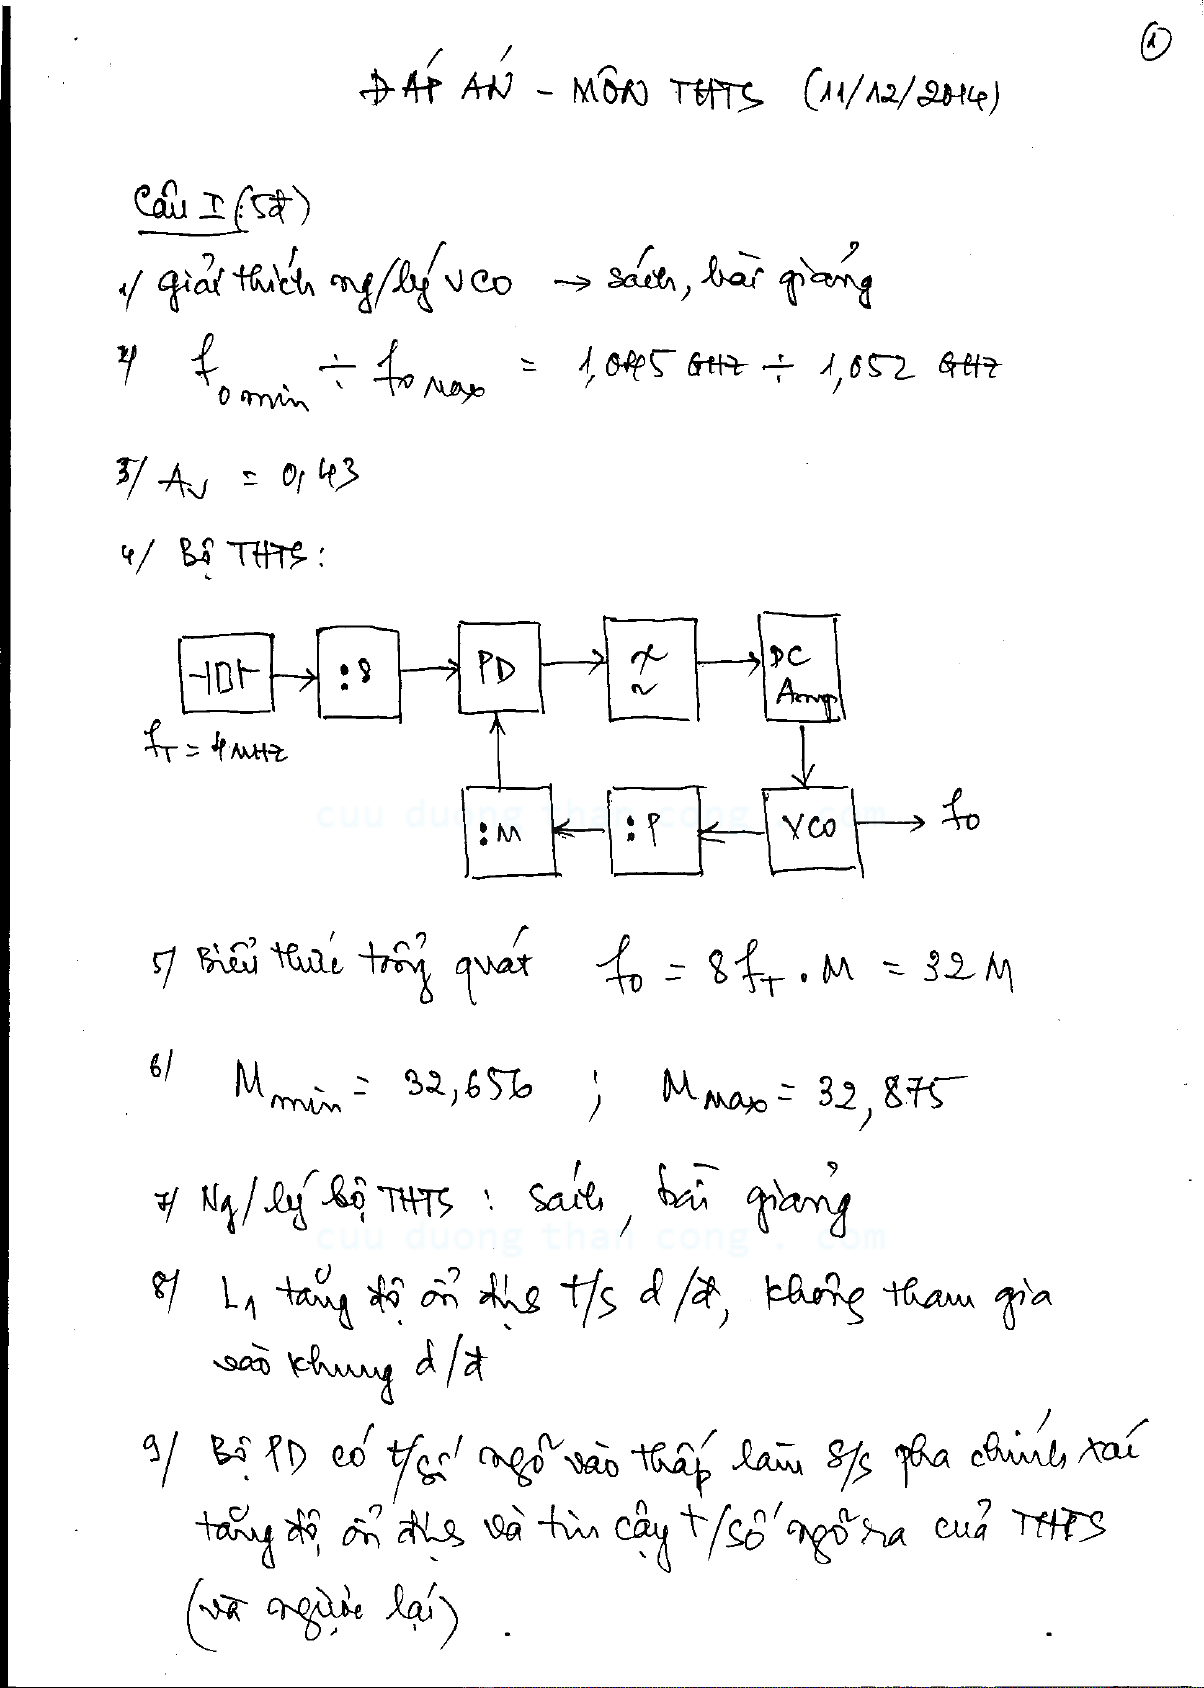 1
ĐÁP ÁN - MÔN THTS (11/12/2014)
Câu I (5đ)
1/ Giải thích ng/lý VCO → sách, bài giảng
2/ f0min ÷ f0Max = 1,045 GHz ÷ 1,052 GHz
3/ Av = 0,43
4/ Bộ THTS:
:8 PD DC Amp
fT = 4MHz
:M :P VCO f0
cuu duong than cong . com
5/ Biểu thức tổng quát f0 = 8fT . M = 32M
6/ Mmin = 32,656 ; MMax = 32,875
7/ Ng/lý bộ THTS : sách, bài giảng
cuu duong than cong . com
8/ L1 tăng độ ổn định t/s d/đ, không tham gia
vào khung d/đ
9/ Bộ PD có t/số ngõ vào thấp làm s/s pha chính xác
tăng độ ổn định và tin cậy t/số ngõ ra của THTS
(và ngược lại).